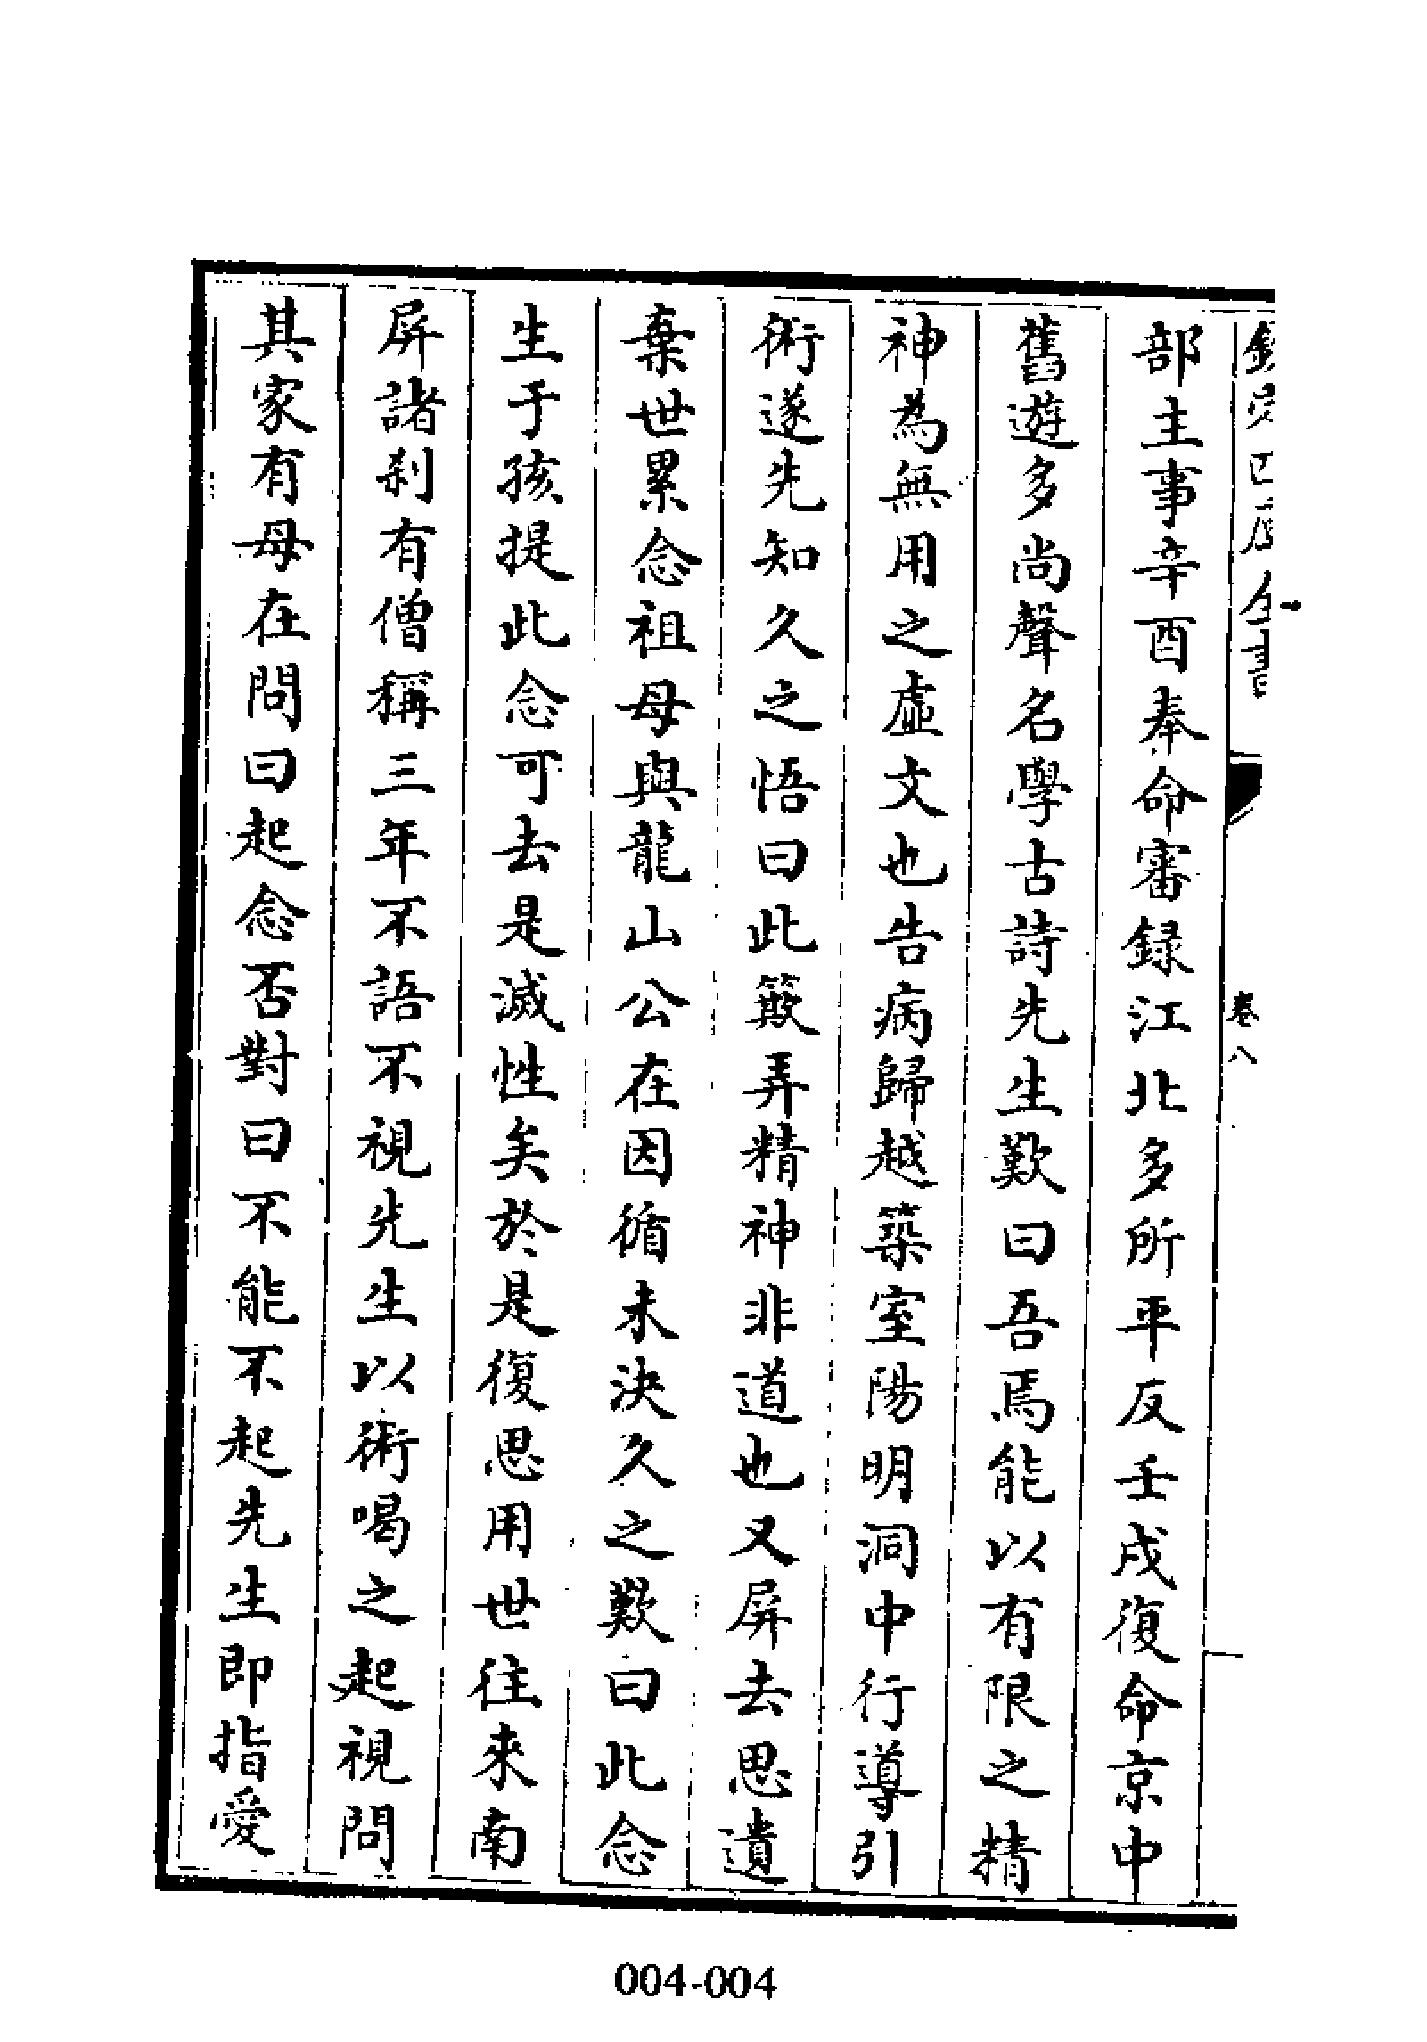 欽定四庫全書
卷八
部主事辛酉奉命審録江北多所平反壬戌復命京中
舊遊多尚聲名學古詩先生歎曰吾焉能以有限之精
神為無用之虛文也告病歸越築室陽明洞中行導引
術遂先知久之悟曰此簸弄精神非道也又屏去思遺
棄世累念祖母與龍山公在因循未決久之歎曰此念
生于孩提此念可去是滅性矣於是復思用世往來南
屏諸刹有僧稱三年不語不視先生以術喝之起視問
其家有母在問曰起念否對曰不能不起先生即指愛
004-004